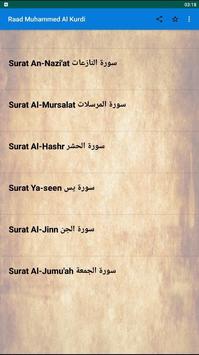 03:18
Raad Muhammed Al Kurdi
Surat An-Nazi'at سورة النازعات
Surat Al-Mursalat سورة المرسلات
Surat Al-Hashr سورة الحشر
Surat Ya-seen سورة يس
Surat Al-Jinn سورة الجن
Surat Al-Jumu'ah سورة الجمعة